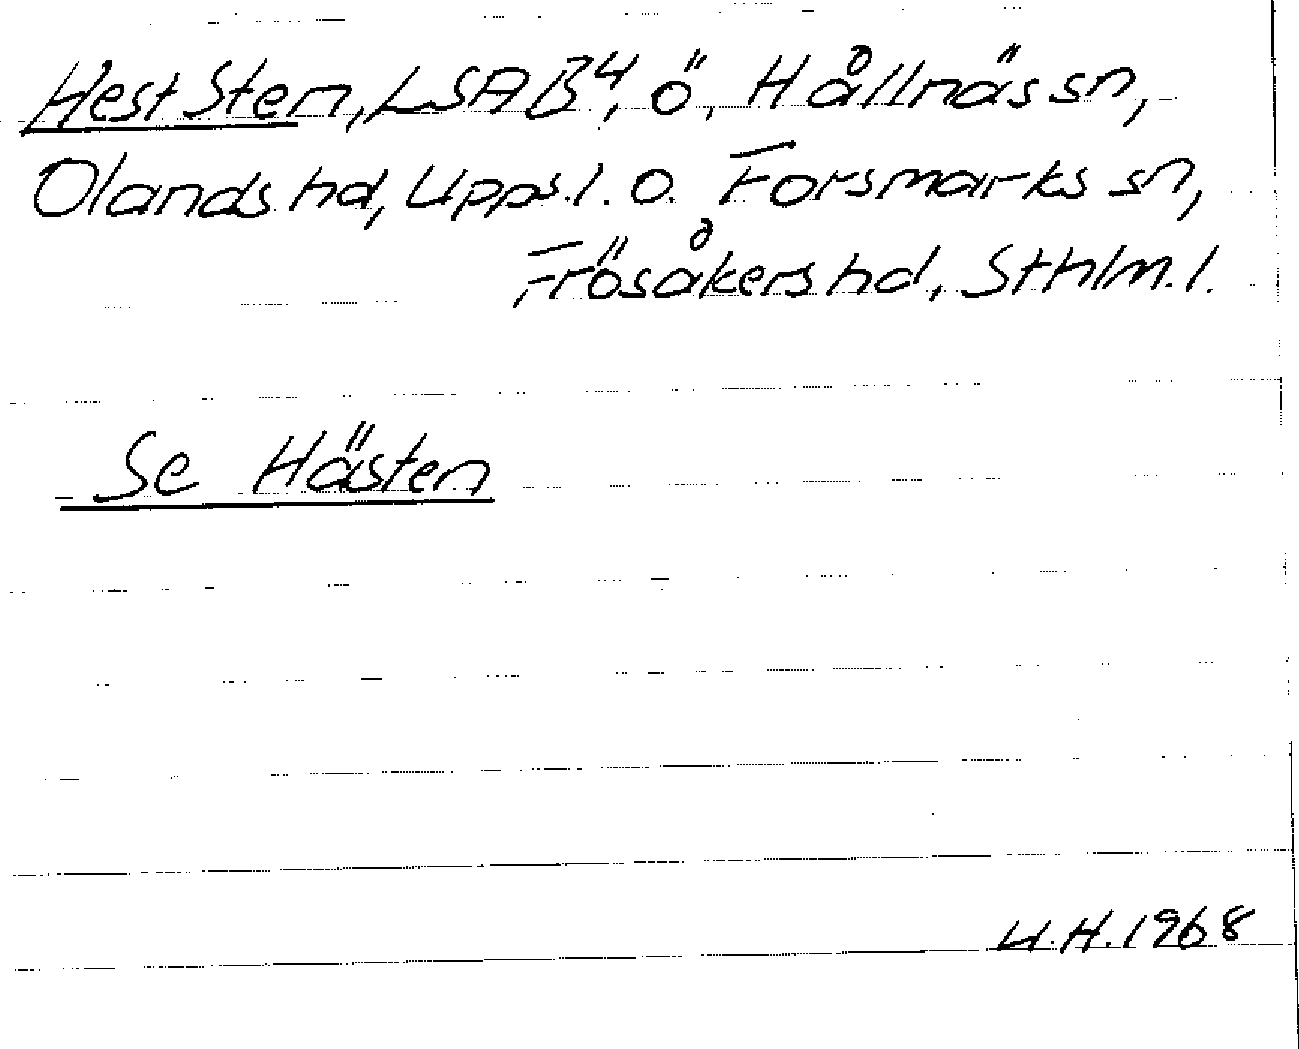 Hest Sten, LSA B⁴, ö, Hållnäs sn,
Olands hd, Upps. l. o. Forsmarks sn,
Frösåkers hd, Sthlm. l.
Se Hästen
U.H. 1968